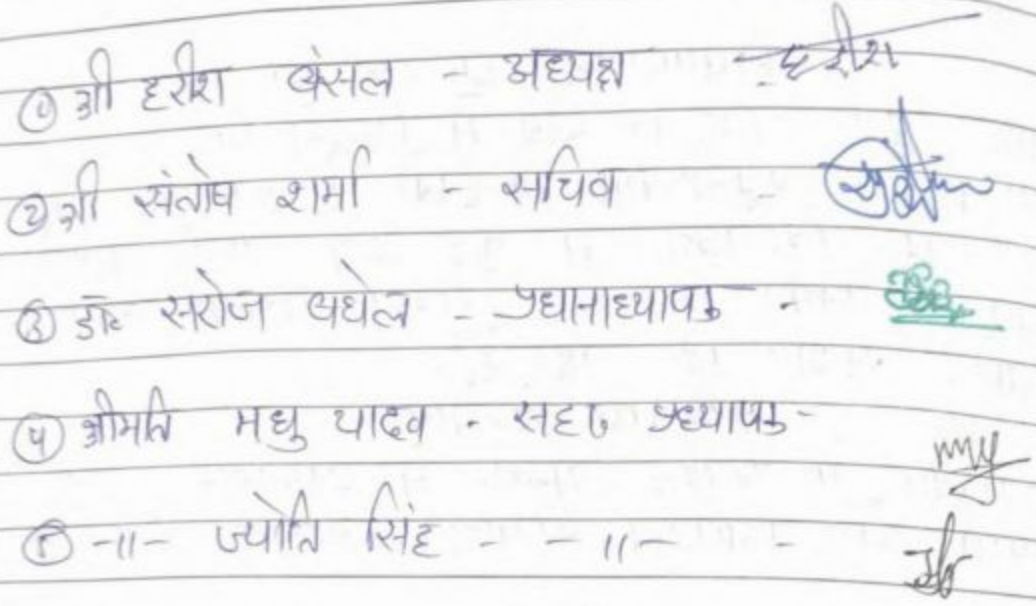 ① श्री हरीश बंसल - अध्यक्ष - हरीश
② श्री संतोष शर्मा - सचिव -
③ डॉ सरोज बघेल - प्रधानाध्यापक -
④ श्रीमति मधु यादव - सहा० अध्यापक - my
⑤ -11- ज्योति सिंह - - 11 - -